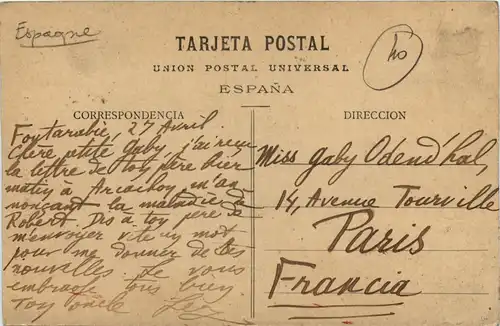 Espagne
40
TARJETA POSTAL
UNION POSTAL UNIVERSAL
ESPAÑA
CORRESPONDENCIA
Fontarabie, 27 Avril
Chère petite Gaby, j'ai reçu
la lettre de ton père hier
matin à Arcachon m'an
nonçant la maladie de
Robert. Dis à ton père de
m'envoyer vite un mot
pour me donner de ses
nouvelles. Je vous
embrasse tous bien.
Ton oncle
DIRECCION
Miss Gaby Odend'hal,
14, Avenue Tourville
Paris
Francia